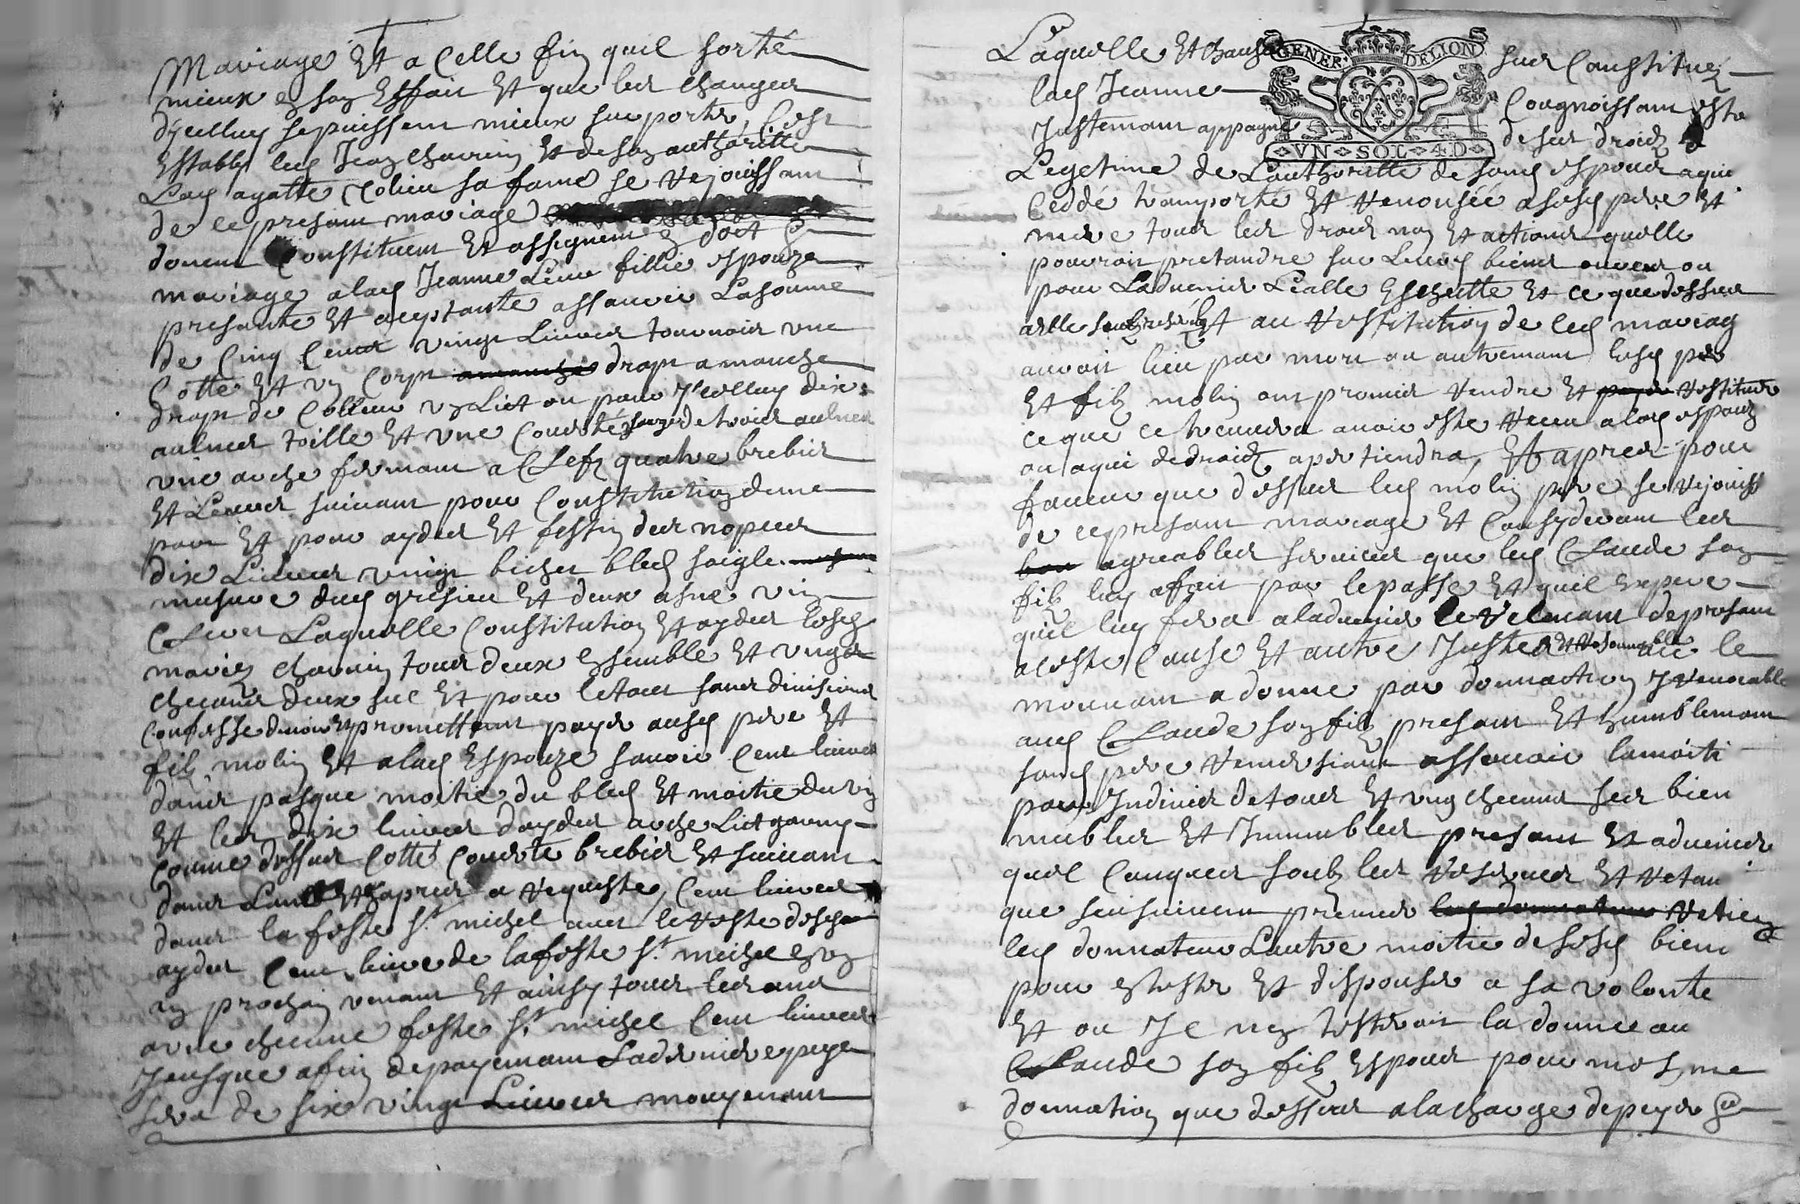 Mariage Et a Celle fin quil sorte
mieux en son Effait Et que les charges
dycelluy se puissent mieux suporter, C'est
Estably led Jean charvin Et de son authoritte
Lad agatte Colieu sa fame se rejouissant
de ce presant mariage
donent Constituent Et assignent en doct
mariage a lad Jeanne Leur fillie espouze
presante Et aceptante assavoir La somme
de Cinq Cents vingt Livres tournois une
Cotte Et un Corps drapt a manche
drapt de Colleur un Lict ou pour Icelluy dix
aulnes toille Et une Couverte de trois aulnes
une arche fermant a Clefz quatre brebies
Et Leurs suivant pour Constitution dune
part Et pour aydes Et festin des nopces
dix Livres vingt bichet bled soigle
mesure dud Et deux asne vin
Cleret Laquelle Constitution Et aydes lesd
mariez charvin tous deux ensemble Et ung
checuns deux sul Et pour le tout sans division
Confesse devoir Et promettent payer ausd pere Et
filz molin Et a lad Espouze savoir Cent livres
dans pasque moitie du bled Et moitie du vin
Et les dix livres daydes arche Lict garny
Comme dessus Cotte Couverte brebies Et suivant
dans Lan Et apres a requeste, Cent livres
dans la feste St michel avec le reste desd
aydes Cent livre de la feste St michel en un
an prochain venant Et ainsy tous les ans
a une checune feste St michel Cent livres
Jeusque a fin de payemant La derniere peye
sera de six vingt Livres moyenant
Laquelle Et Sus Constituez
lad Jeanne Cougnoissant estre
Justemant appagné de ses droidz
Legetime de Lauthoritte de sond espoux a qui
Ceddé transporté Et renonsée a sesd pere Et
mere tous les droidz noz Et actions quelle
pouvroit pretandre sur Leurs biens ouvert ou
pour Ladvenir Et ce que dessus
Et au restitution de lad mariag
auroit lieu par mort ou autremant lesd pere
Et filz molin ont promis rendre Et restituer
ce que ce treuvera avoir este receu a lad espouze
ou a qui de droidz apertiendra, Et apres pour
faveur que dessus led molin pere se rejouiss
de ce presant mariage Et Considerant les
agreables services que led Claude son
filz luy a fait par le passe Et quil espere
quil luy fera a ladvenir le relevant de presant
a ceste Cause Et autre Juste le
mouvant a donne par donnation Irrevocable
aud Claude son filz presant Et humblemant
sond pere remersiant assavoir la moiti
par Indivis de tous Et ung checuns ses bien
meubles Et Immubles presant Et advenir
quel Conques soubz les reserves Et retan
que sensuivent premier retien
led donnateur Lautre moitie de sesd bien
pour en tester Et disposer a sa volonte
Et ou Je nen testeroit la donne au
Claude son filz Espoux pour mesme
donnation que dessus a la charge de peyer
GENER. DE LION
VN SOL 4 D